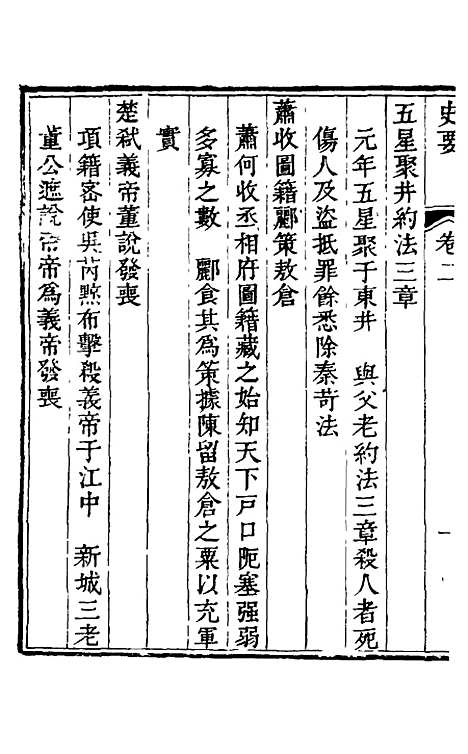 史要 卷二
五星聚井約法三章
元年五星聚于東井 與父老約法三章殺人者死
傷人及盜抵罪餘悉除秦苛法
蕭收圖籍酈策敖倉
蕭何收丞相府圖籍藏之始知天下戸口阨塞强弱
多寡之數 酈食其爲策據陳留敖倉之粟以充軍
實
楚弒義帝董說發喪
項籍密使吳芮黥布擊殺義帝于江中 新城三老
董公遮說帝帝爲義帝發喪